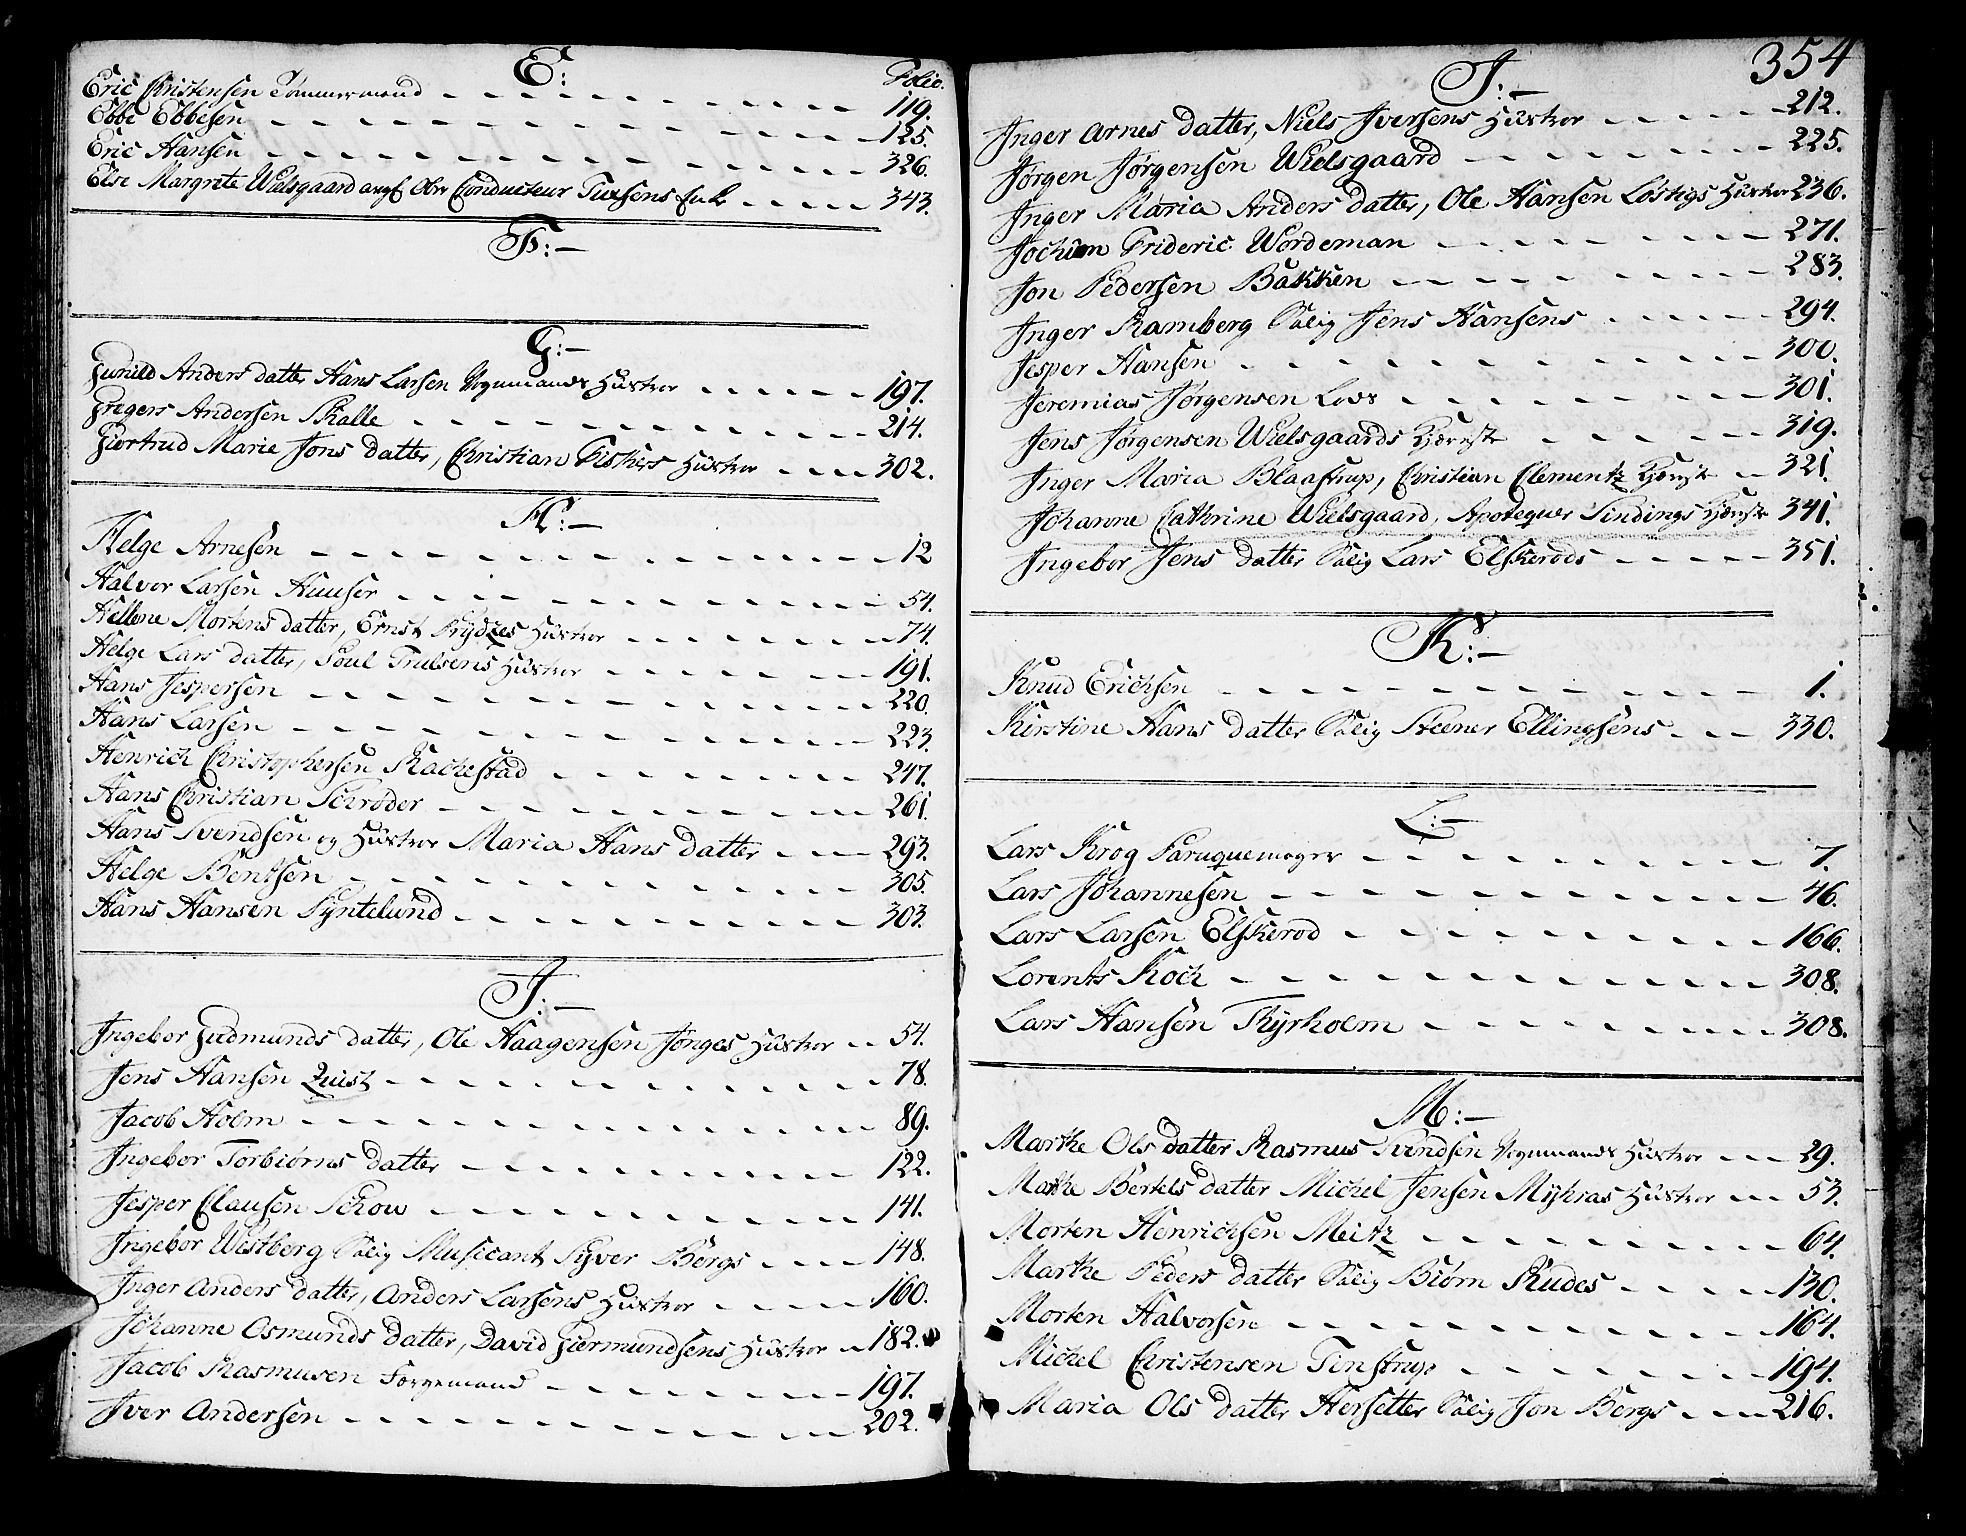 E:
Folio.
Eric Christensen Tömmermand 119.
Ebbe Ebbesen 125.
Eric Hansen 326.
Else Margrete Wielsgaard Obr Conducteur Tuxsens Enke 343.
F:
G:
Gunild Anders datter Hans Larsen Vognmands Hustroe 197.
Gregers Andersen Skalle 214.
Giertrud Marie Jons datter, Christian Fiskers Hustroe 302.
H:
Helge Arnesen 12
Halvor Larsen Huuser 54.
Hellene Mortens datter, Ernst Prydzes Hustroe 74.
Helge Lars datter, Poul Trulsens Hustroe 191.
Hans Jespersen 220.
Hans Larsen 223.
Henrich Christophersen Rachestad 247.
Hans Christian Schrøder 261.
Hans Svendsen og Hustroe Maria Hans datter 293.
Helge Bentsen 305.
Hans Hansen Pyntelund 303.
J:
Ingebor Gudmunds datter, Ole Haagensen Jonges Hustroe 54.
Jens Hansen Quist 78.
Jacob Holm 89.
Ingebor Torbiørns datter 122.
Jesper Clausen Schow 141.
Ingebor Westberg Salig Musicant Syver Bergs 148.
Inger Anders datter, Anders Larsens Hustroe 160.
Johanne Osmunds datter, David Giermundsens Hustroe 182.
Jacob Rasmusen Færgemand 197.
Iver Andersen 202.
354
J:
Inger Arnes datter, Niels Iversens Hustroe 212.
Jørgen Jørgensen Wielsgaard 225.
Inger Maria Anders datter, Ole Hansen Løstigs Hustroe 236.
Jochim Frideric Wordeman 271.
Jon Pedersen Bakken 283.
Inger Ramberg Salig Jens Hansens 294.
Jesper Hansen 300.
Jeremias Jørgensen Lovs 301.
Jens Jørgensen Wielsgaards Kiæreste 319.
Inger Maria Blaastrup, Christian Clementz Kiæreste 321.
Johanne Cathrine Wielsgaard, Apotequer Tindings Kiæreste 341.
Ingebor Jens datter Salig Lars Elskerods 351.
K:
Knud Erichsen 1.
Kirstine Hans datter Salig Steener Ellingsens 330.
L:
Lars Krog Paruquemager 7.
Lars Johannesen 46.
Lars Larsen Elskerod 166.
Lorents Koch 308.
Lars Hansen Thyrholm 308.
M:
Marthe Ols datter Rasmus Svendsen Vognmands Hustroe 29.
Marthe Bertels datter Michel Jensen Myhras Hustroe 53.
Morten Henrichsen Meitz 64.
Marthe Peders datter Salig Biørn Rudes 130.
Morten Halvorsen 164.
Michel Christensen Tinstrup 194.
Maria Ols datter Hersetter Salig Jon Bergs 216.